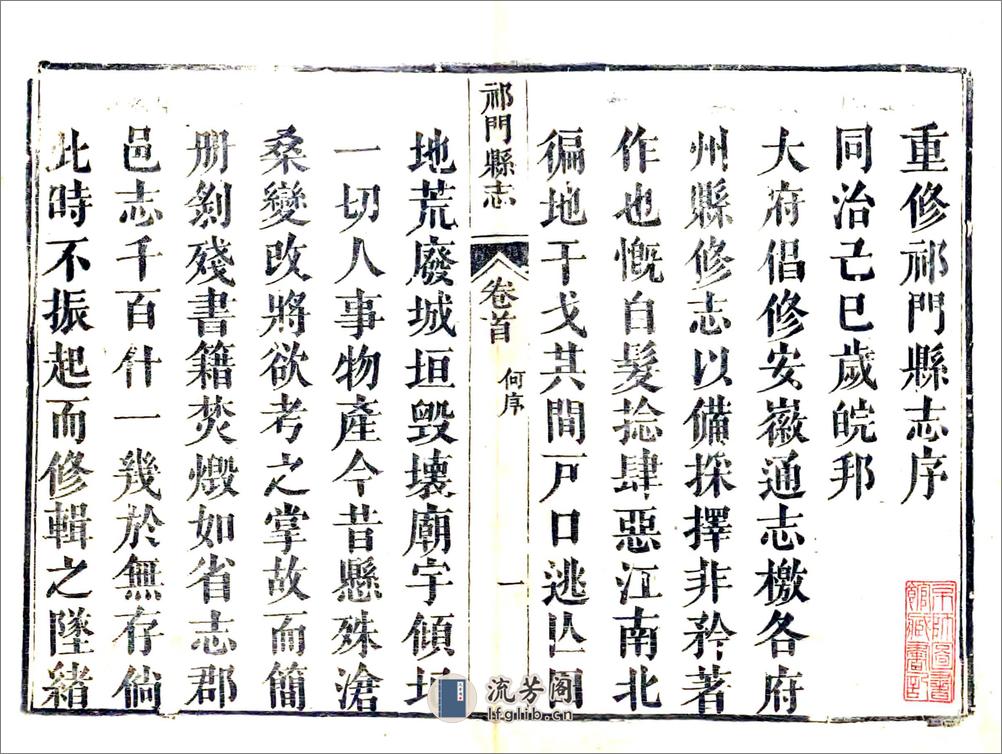 重修祁門縣志序
同治己巳歲皖邦
大府倡修安徽通志檄各府
州縣修志以備採擇非矜著
作也慨自髮捻肆惡江南北
徧地干戈其間戸口逃亾田
祁門縣志
卷首
何序
一
地荒廢城垣毀壞廟宇傾圮
一切人事物產今昔懸殊滄
桑變改將欲考之掌故而簡
册剝殘書籍焚燬如省志郡
邑志千百什一幾於無存倘
此時不振起而修輯之墜緒
流芳阁
lfglib.cn